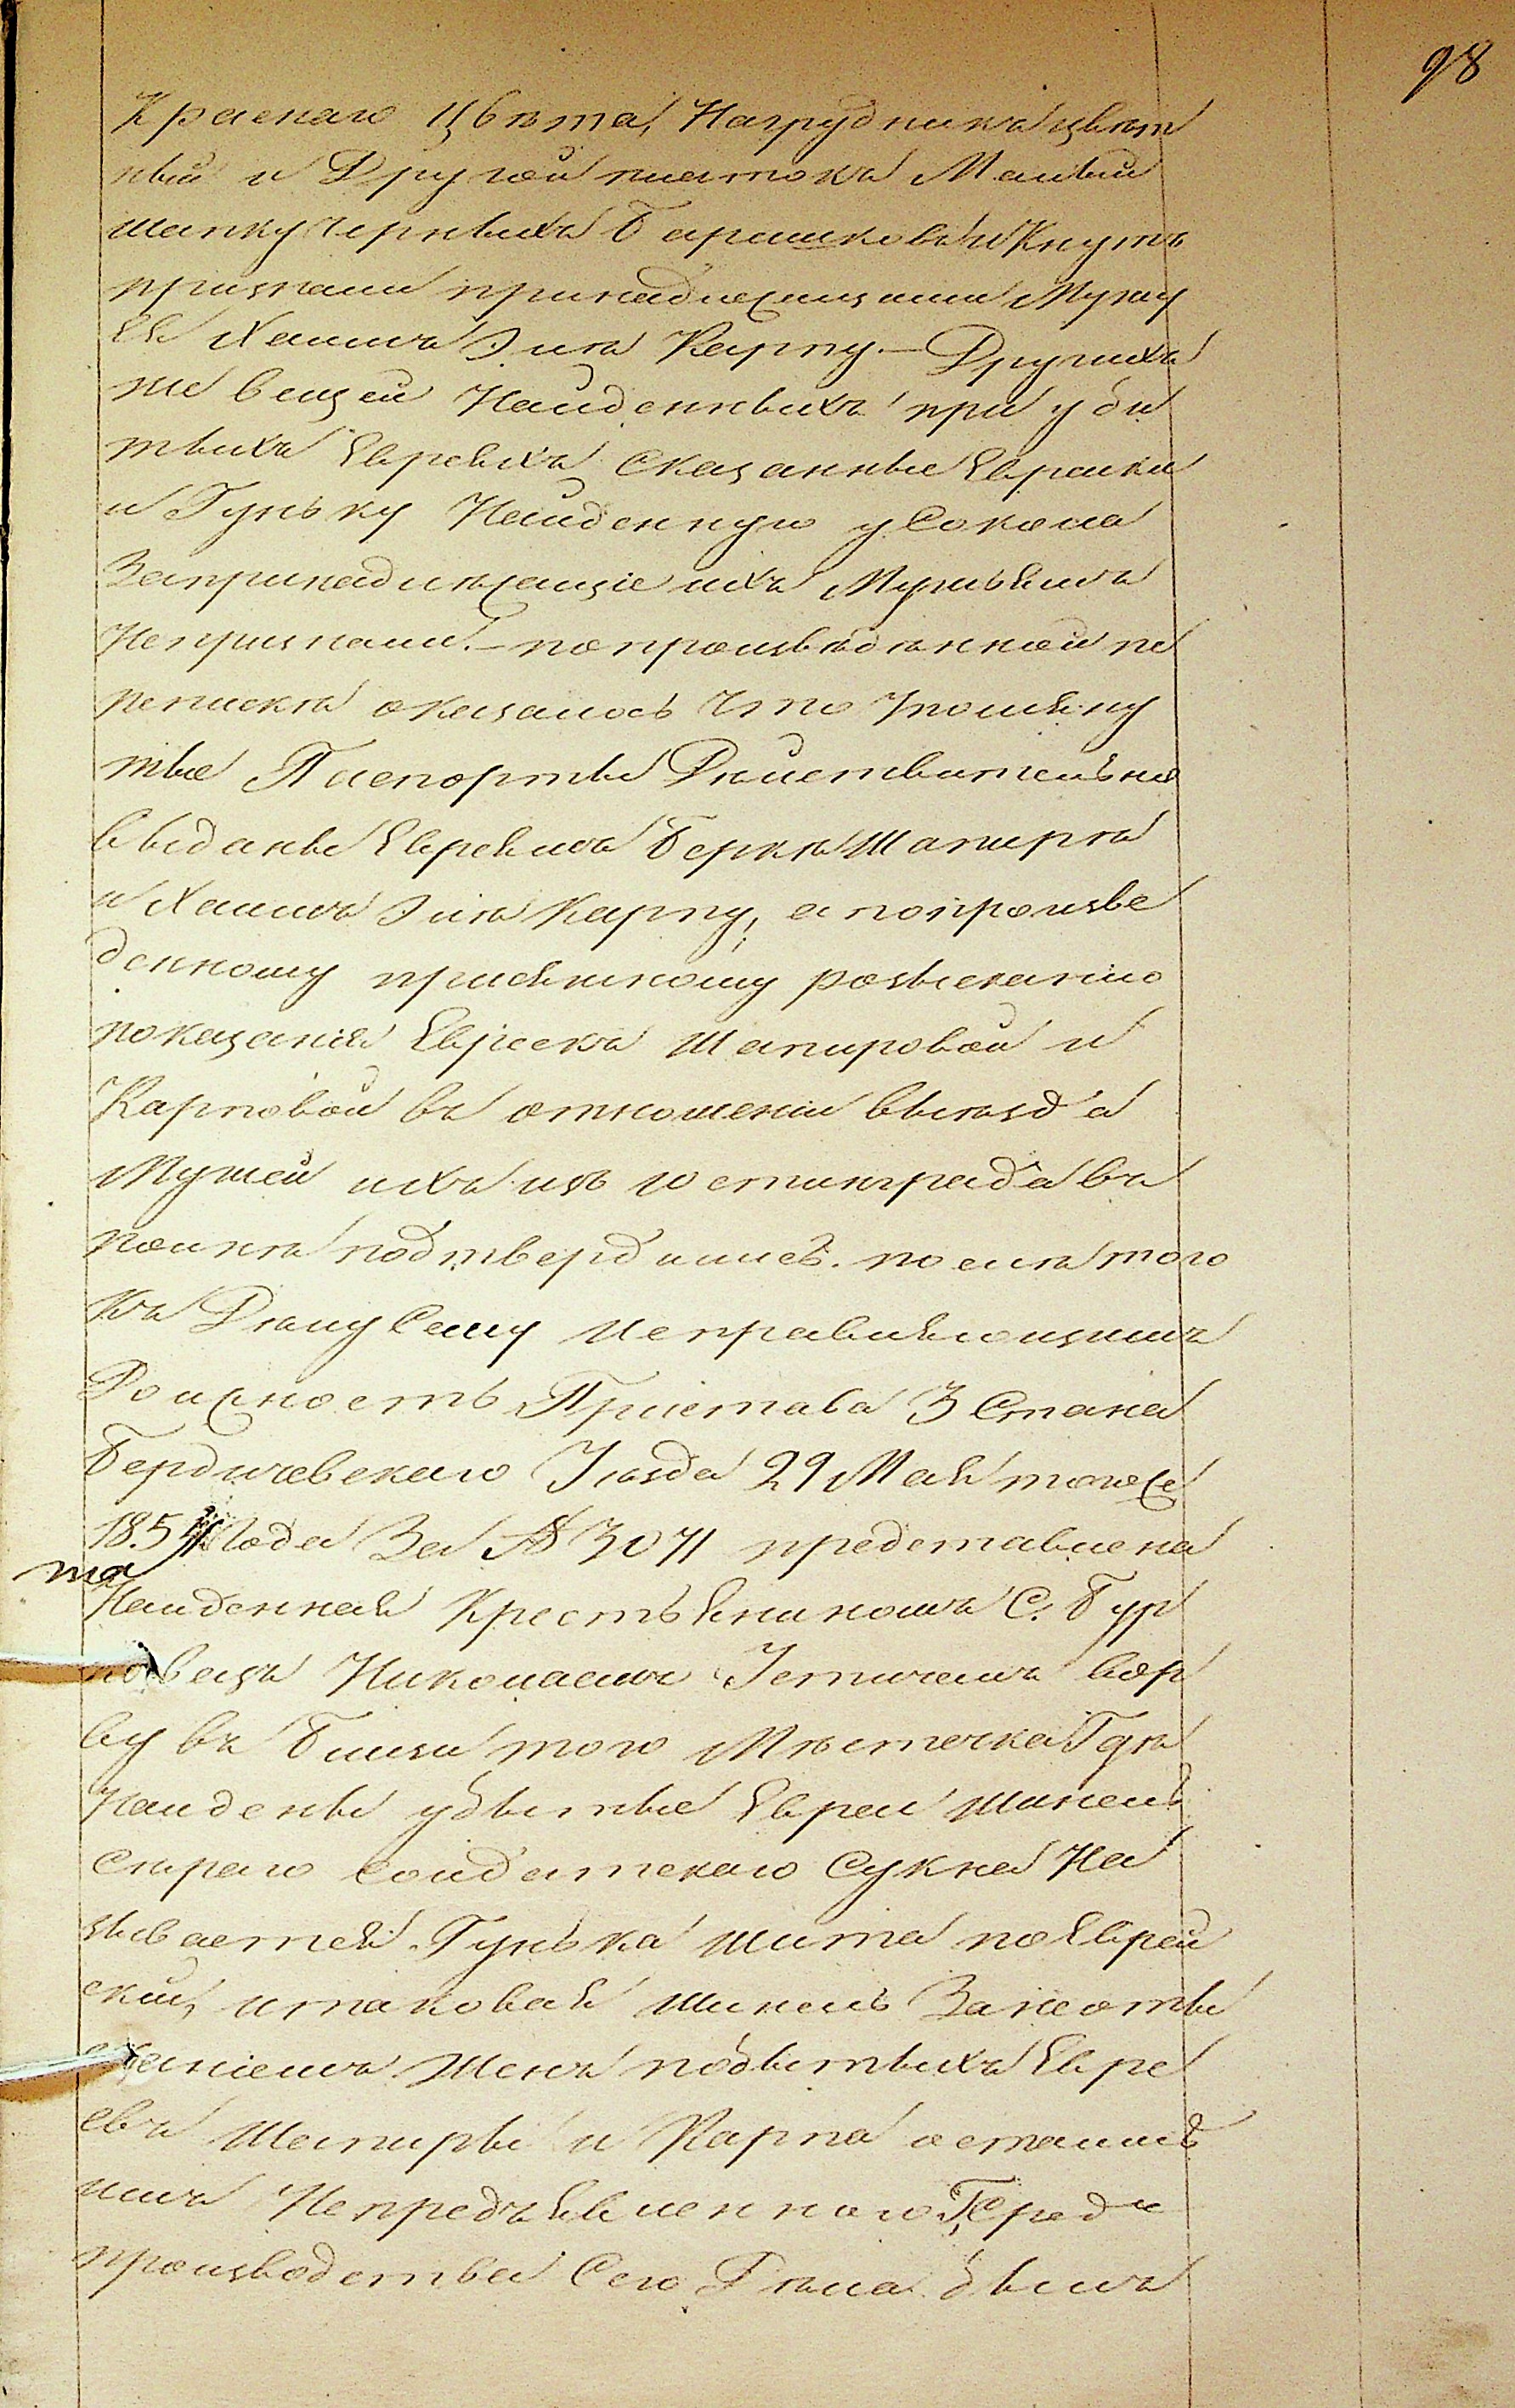 98
Краснаго Цвѣта, Нагрудникъ цвѣт
ный и Другой платокъ Малый
шапку черныхъ Барашковъ и Кнутъ
признали принадлежащими Мужу
ея Хаимъ Элѣ Карпу. — Другихъ
же вещей Найденныхъ при уби
тыхъ Евреяхъ Сказанные Еврейки
и Гуньку Найденную у Сокола
За принадлѣжащіе ихъ Мужьямъ
Непризнали. — по произвѣдѣнной пе
репискѣ оказалось что Упомяну
тые Паспорты Дѣйствительно
выданы Евреямъ Беркѣ Шапирѣ
и Хаимъ Элѣ Карпу, а по произве
денному присяжному розысканію
показанія Евреекъ Шапировой и
Карповой въ отношеніи выѣзда
Мужей ихъ изъ Юстинграда въ
подтвердились. послѣ того
Къ Дѣлу Сему Исправляющимъ
Должность Пристава 3 Стана
Бердичевскаго Уѣзда 29 Мая того же
1854 Года За № 3071 представлена
та
Найденная Крестьяниномъ С. Бур
ковецъ Николаемъ Устичемъ
въ Близи того Мѣстечка Гдѣ
Найдены убытые Евреи Шинель
Сѣраго солдатскаго Сукна На
зывается Гунька шита по Еврей
ски, и таковая шинель За неоты
сканіемъ Женъ побытыхъ Евре
евъ Шапиры и Карпа осталась
имъ Непредъявленною, Передъ
производства Сего Дѣла былъ